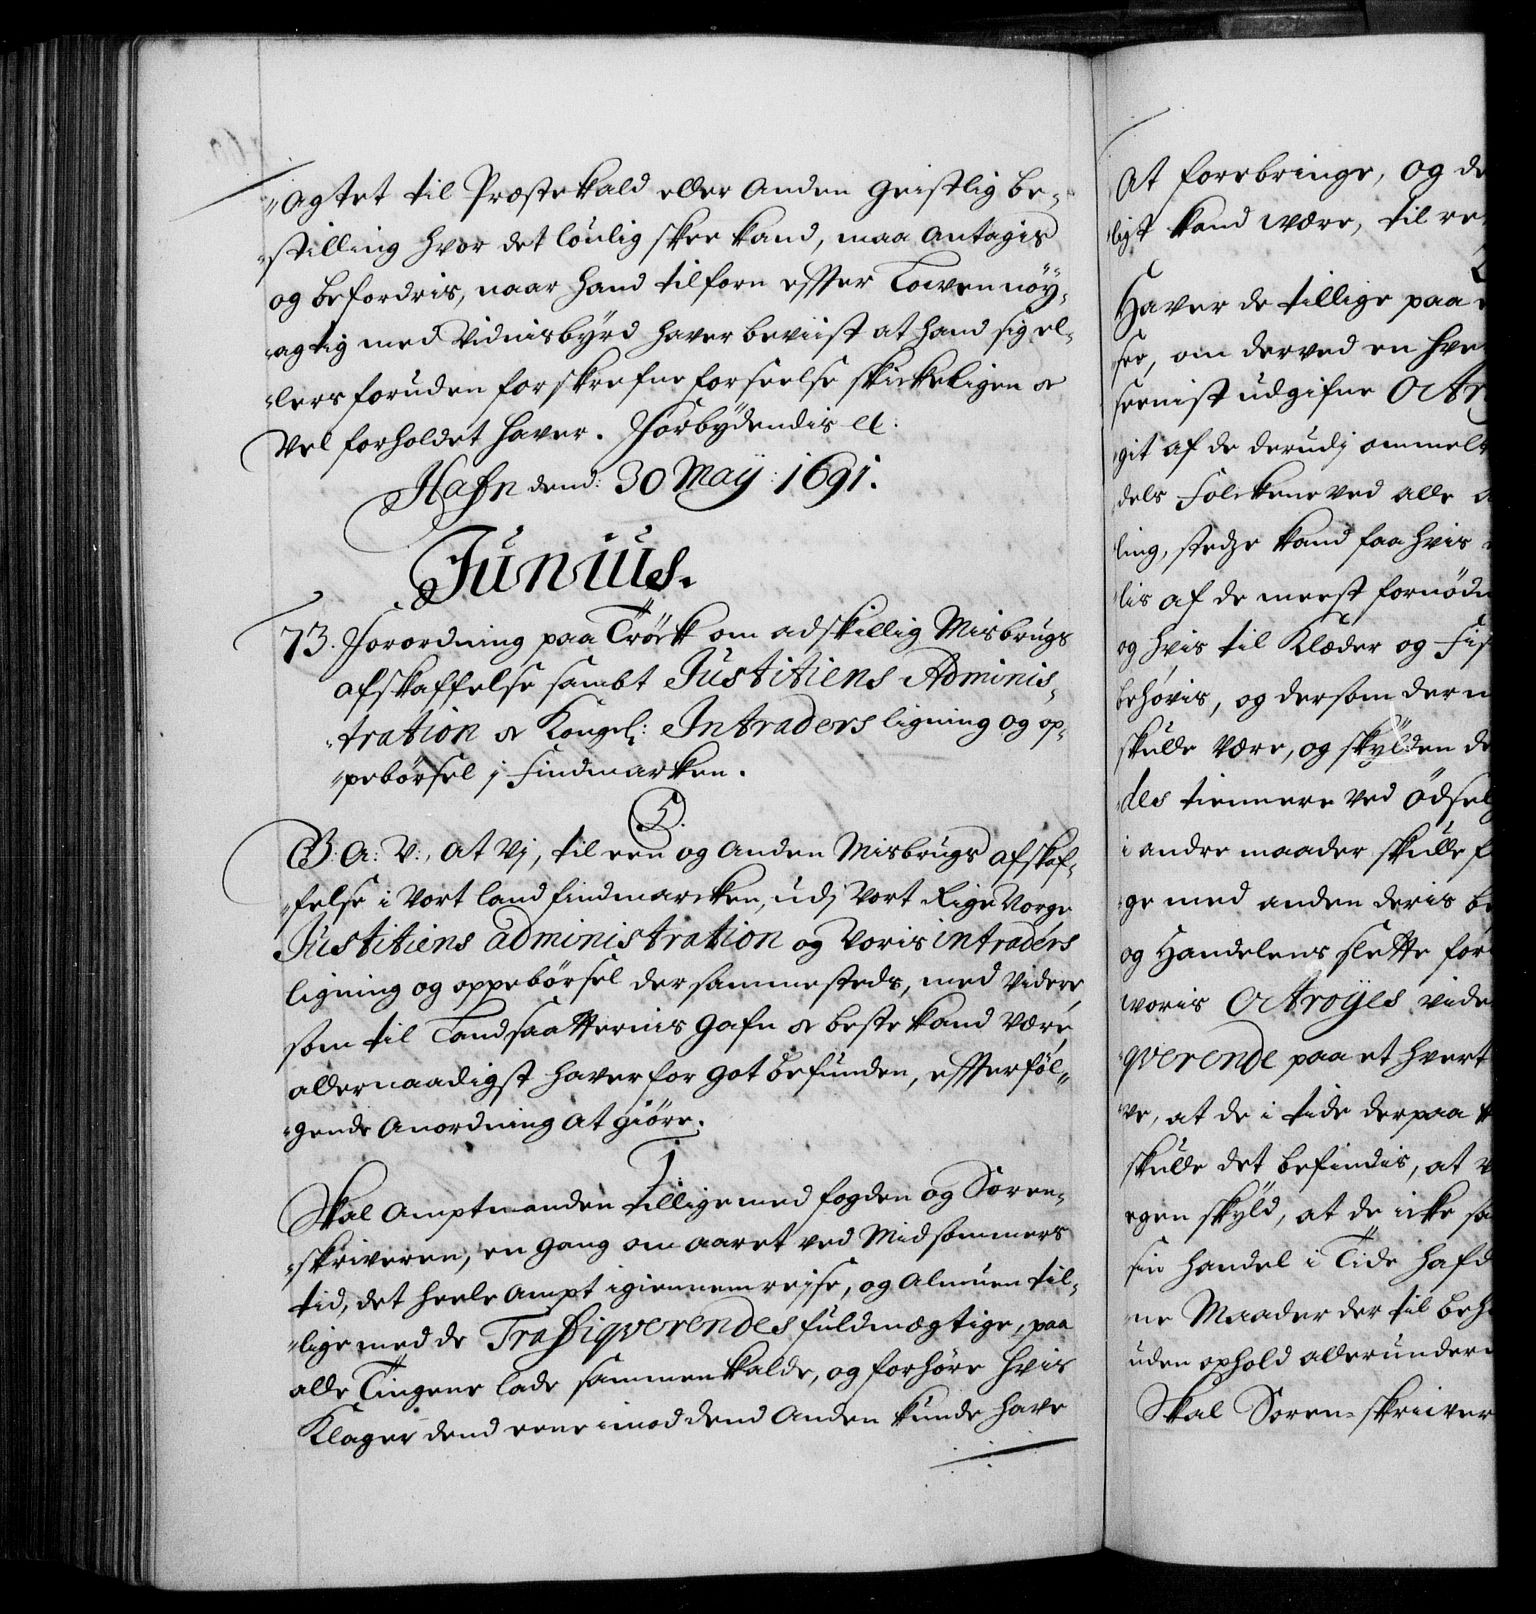 "agtet til Præstekald eller anden geistlig be-
"stilling hvor det lóulig skee kand, maa antagis
og befordris, naar hand tilforn effter Lowen nöy-
"agtig med Vidnisbÿrd haver beviist at hand sig el-
"lers foruden forskrefne forseelse skickeligen &
Vel forholdet haver. Forbÿdendis &c:
Hafn dend: 30 Maÿ: 1691.
Junius.
73. Forordning paa Tröck om adskillig Misbrugs
afskaffelse sambt Justitiens Adminis-
"tration & Kongel: Intraders ligning og op-
"pebörsel j Findmarken.
5.
G: A: V:, At Vj, til een og anden Misbrugs afskaf-
"felse i Vort land findmarcken, udj Vort Rige Norge
Justitiens administration og Voris intraders
ligning og oppebörsel dersammesteds, med Videre,
som til Landsaatternis gafn & beste kand være,
allernaadigst haver for got befunden, effterföl-
"gende Anordning at giöre.
1.
Skal Amptmanden tillige med fogden og Soren-
"skriveren, en gang om aaret ved Midsommers
tid, det heele Ampt igiennemreise, og Almuen til-
"lige med de Trafiqverendes fuldmægtige, paa
alle Tingene lade sammenkalde, og forhöre hvis
Klager dend eene imod dend Anden kunde have
At forebringe, og de
ligt kand være, til re
Haver de tillige paa
see, om derved en hve
seenist udgifne Octr
"git af de derudj ommelt
dels Folckene ved alle
ling, stedze kand faa hvis
"lis af de meest fornödn
og hvis til Klæder og Fis
behövis, og dersom der n
skulle være, og skÿlden de
"des tiennere ved ödsel
i andre maader skulle f
"ge med anden deris be
og Handelens slette for
woris Octroÿes vide
"qverende paa et hvert
"ve, at de i tide derpaa
skulle det befindis, at
egen skÿld, at de icke
sin handel i Tide hafd
"ne Maader der til beh
uden ophold allerunder
Skal Soren-skriiver